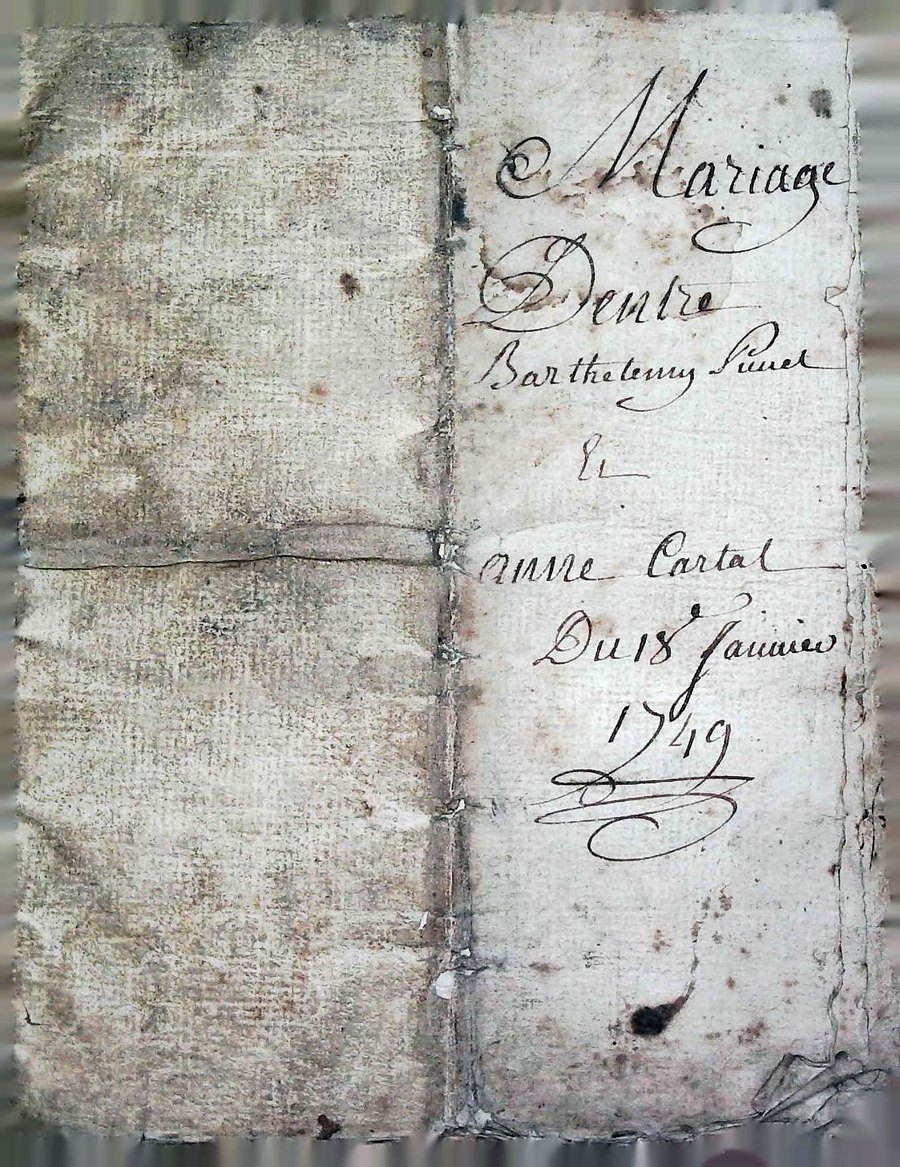 Mariage
Dentre
Barthelemy
Et
anne Cartal
Du 18e Janvier
1749